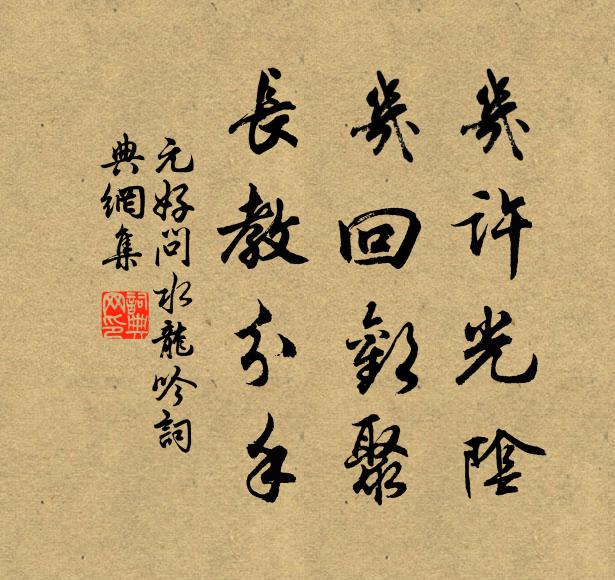 幾許光陰
幾回歡聚
長教分手
元好問水龍吟詞
典網集
詞典網印